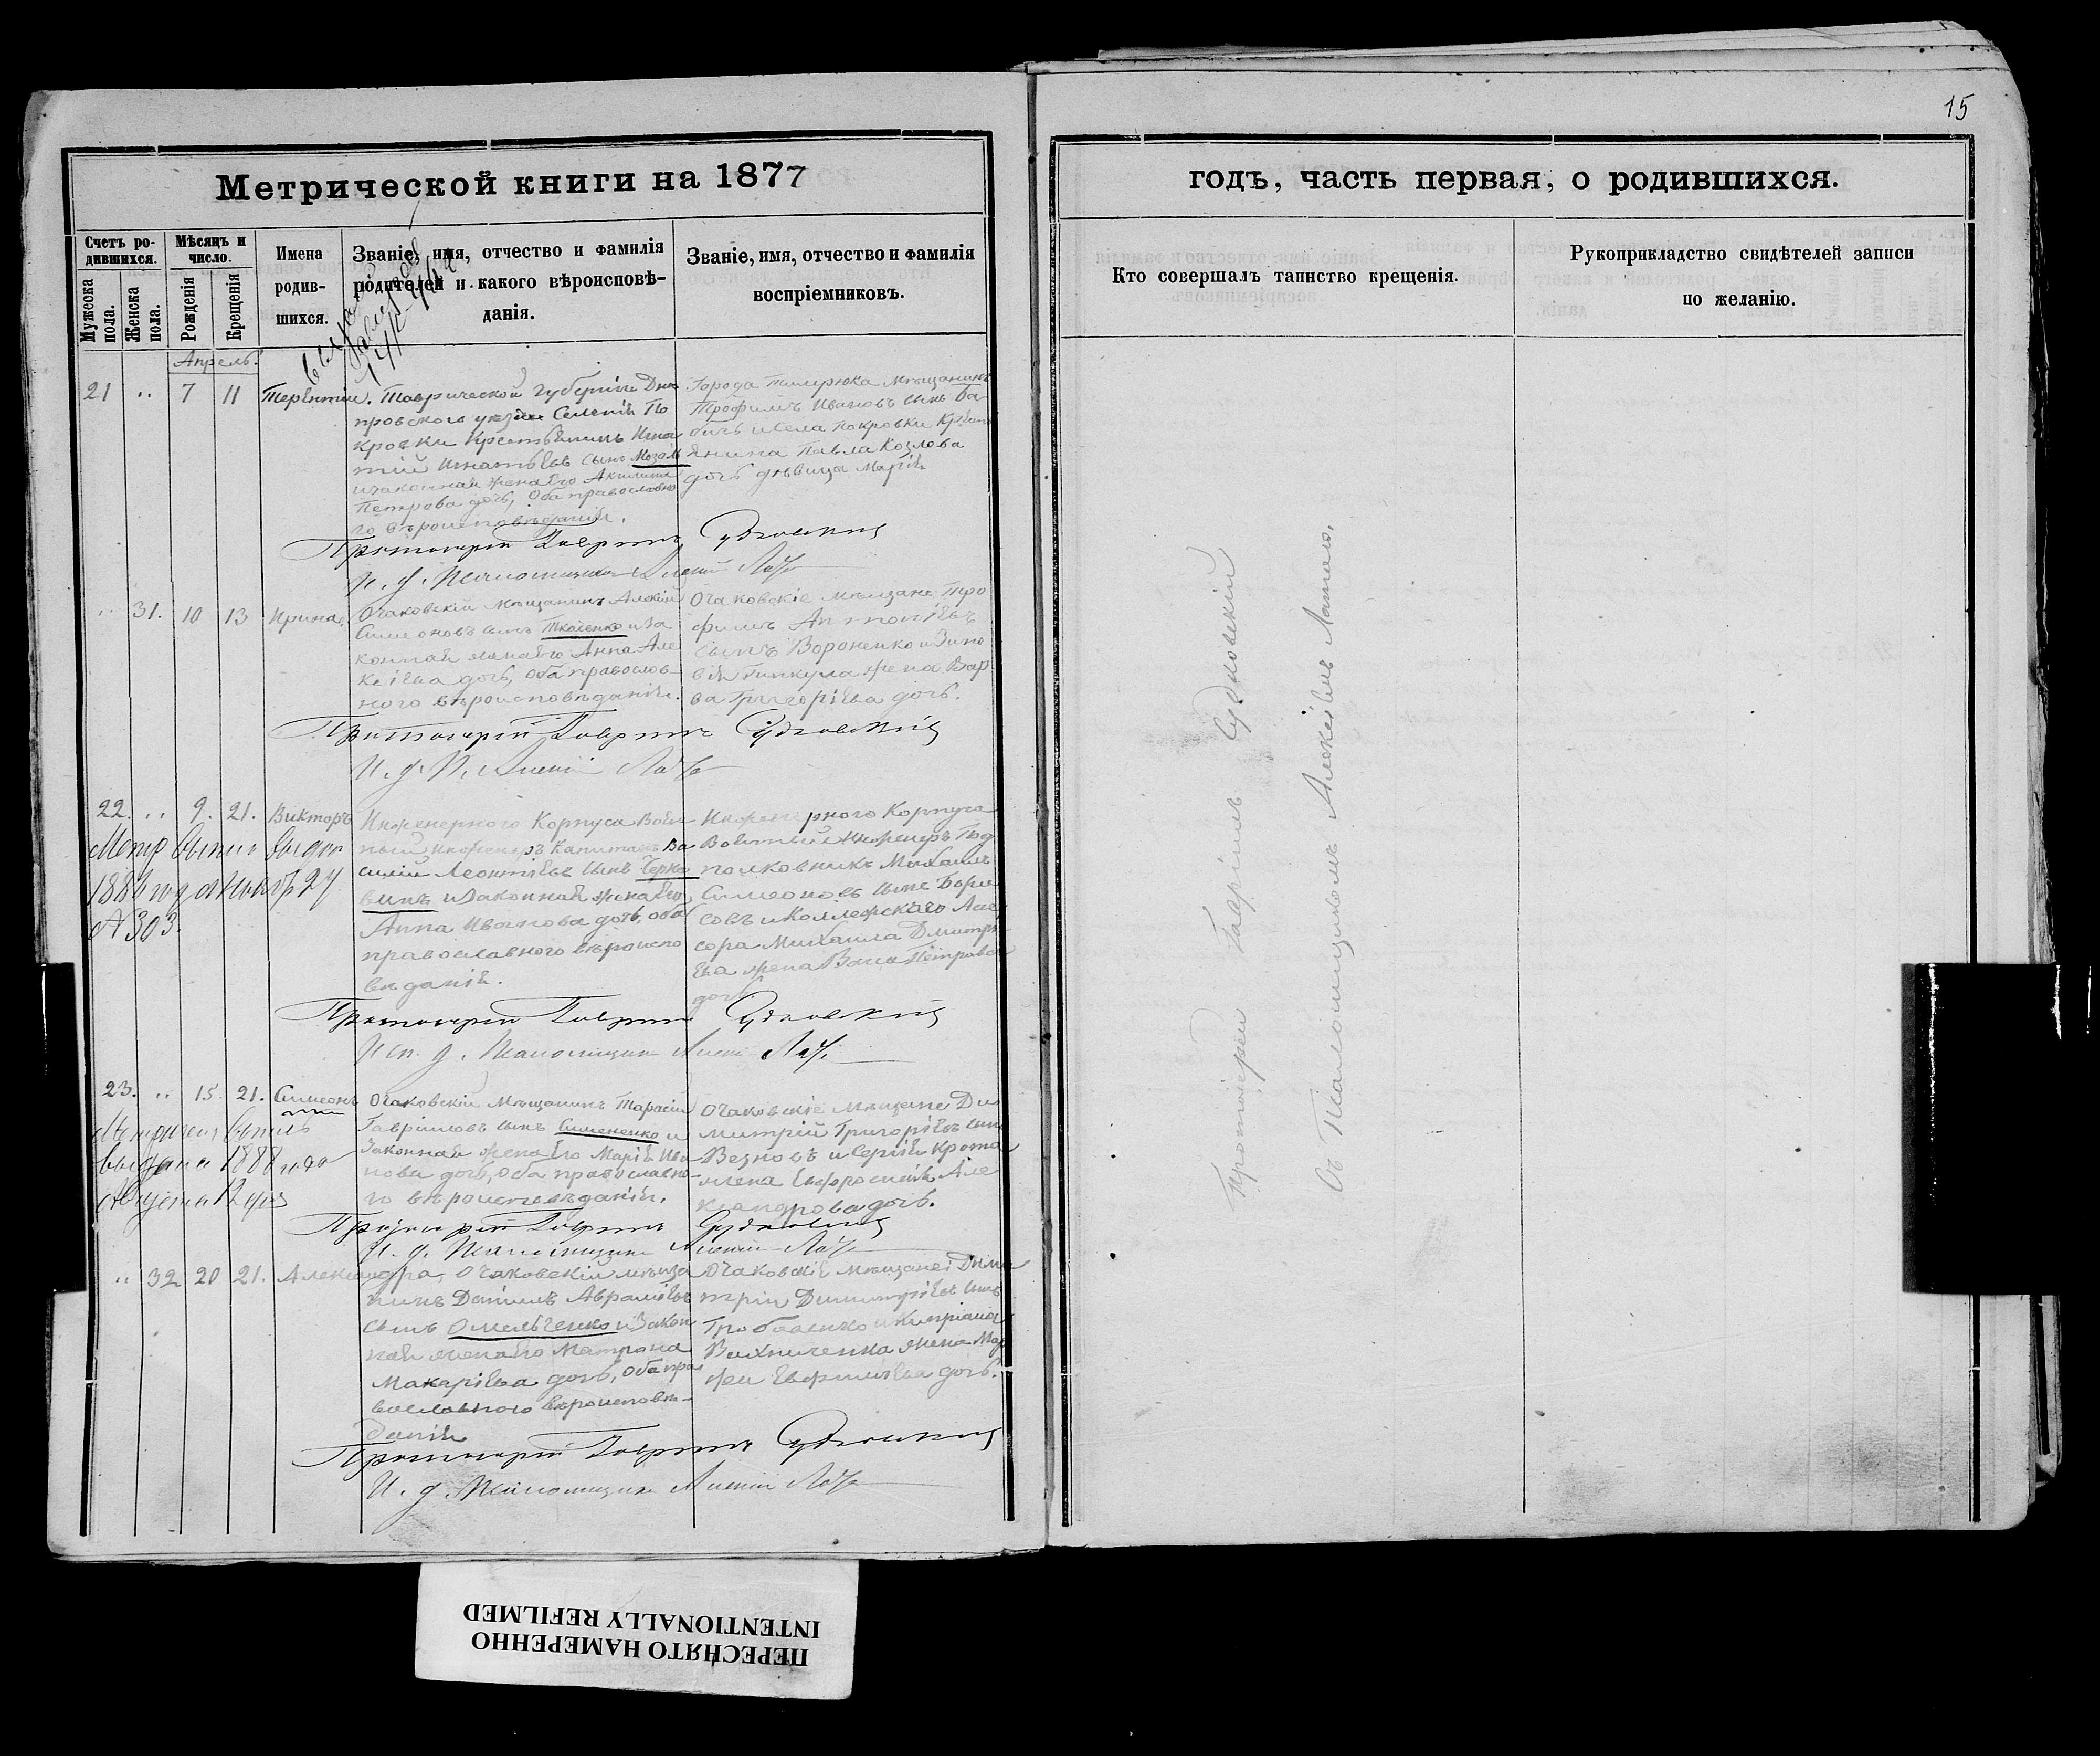 15
Метрической книги на 1877
годъ, часть первая, о родившихся.
Счетъ ро-
дившихся.
Мужеска
пола.
Женска
пола.
Мѣсяцъ и
число.
Рожденія
Крещенія
Имена
родив-
шихся.
Званіе, имя, отчество и фамилія
родителей и какого вѣроисповѣ-
данія.
Званіе, имя, отчество и фамилія
воспріемниковъ.
Кто совершалъ таинство крещенія.
Рукоприкладство свидѣтелей записи
по желанію.
Апрель.
21 " 7 11 Терентій.
Таврической губерніи Днѣ
провскаго уѣзда Селенія По
кровки Крестьянинъ Игна
тій Игнатьевъ сынъ
и законная жена его Акилина
Петрова дочь, Оба православно
го вѣроисповѣданія.
Города Темрюка мѣщанинъ
Трофимъ Ивановъ сынъ Ба
бичъ и села Покровки Крест
янина Павла Козлова
дочь дѣвица Марія
Протоіерей Гавріилъ Судковскій
И. д. Псаломщика Алексій
" 31. 10 13 Ирина.
Очаковскій Мѣщанинъ Алексій
Симеоновъ сынъ Ткаченко и за
конная жена его Анна Але
ксіева дочь, оба православ
ного вѣроисповѣданія.
Очаковскіе мѣщане Тро
фимъ Антоніевъ
сынъ Вороненко и Зино
вія Гинкула жена Вар
ва Григоріева дочь.
Протоіерей Гавріилъ Судковскій
И. д. П. Алексій
22. " 9. 21. Викторъ
Инженерного Корпуса Воен
ный инженеръ Капитанъ Ва
силій Леонтіевъ сынъ Черка
винъ и законная жена его
Анна Иванова дочь, оба
православного вѣроиспо
вѣданія.
Инженерного Корпуса
Военный Инженеръ Под
полковникъ Михаилъ
Симеоновъ сынъ Бори
совъ и Коллежскаго Асе
сора Михаила Дмитрі
ева жена Васса Петрова
дочь
Метр выпись выдан
188
№ 303.
Протоіерей Гавріилъ Судковскій
Исп. д. Псаломщика Алексій
23. " 15. 21. Симеонъ
Очаковскій Мѣщанинъ Тарасій
Гавріиловъ сынъ Симененко и
Законная жена его Марія Ива
нова дочь, Оба православно
го вѣроисповѣданія.
Очаковскіе мѣщане Ди
митрій Григоріевъ сынъ
Везновъ и Сергія Крота
жена Евфросинія Але
ксандрова дочь.
выпись
выдана 1888 года
Августа 12 дня
Протоіерей Гавріилъ Судковскій
И. д. Псаломщика Алексій
" 32 20 21. Александра,
Очаковскій мѣща
нинъ Даніилъ Авраміевъ
сынъ Омельченко и Закон
ная жена его Матрона
Макаріева дочь, оба пра
вославного вѣроисповѣ-
данія
Очаковскіе мѣщане: Дими
трій Димитріевъ сынъ
и Кипріана
жена Мар
фа Евфиміева дочь.
Протоіерей Гавріилъ Судковскій
И. д. Псаломщика Алексій
Протоіерей Гавріилъ Судковскій
Съ Псаломщикомъ Алексіемъ
ПЕРЕСНЯТО НАМЕРЕННО
INTENTIONALLY REFILMED